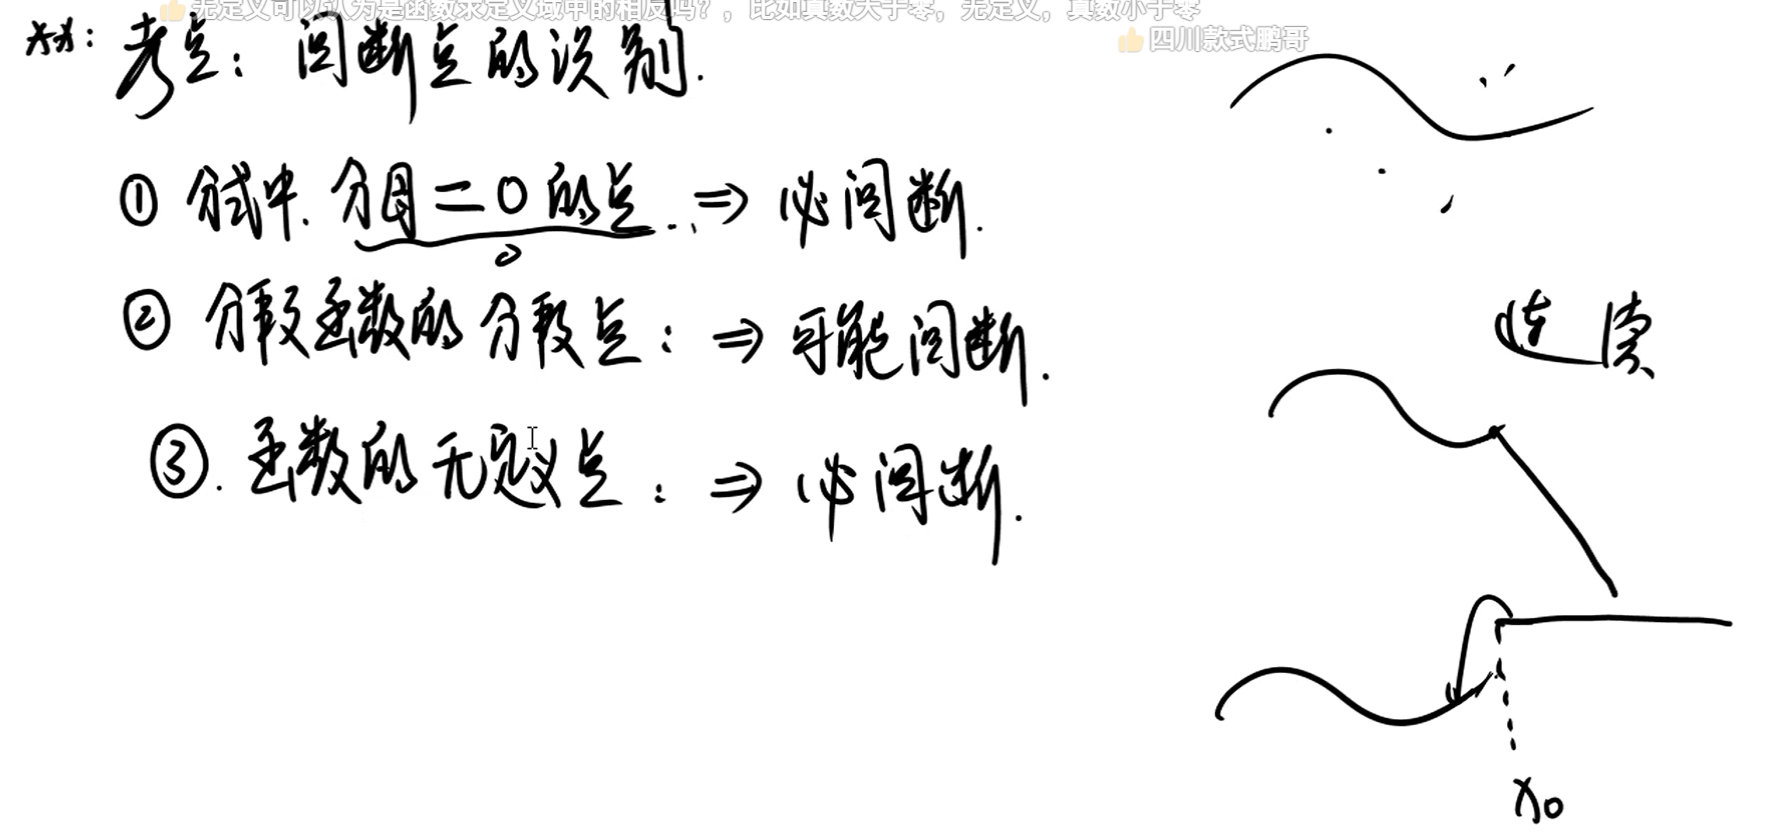 无定义可以认为是函数求定义域中的相反吗？，比如真数大于零，无定义，真数小于零
四川款式鹏哥
考点：间断点的识别.
① 分式中.分母=0的点 ⇒ 必间断.
② 分段函数的分段点：⇒ 可能间断.
③.函数的无定义点：⇒ 必间断.
连续
x₀